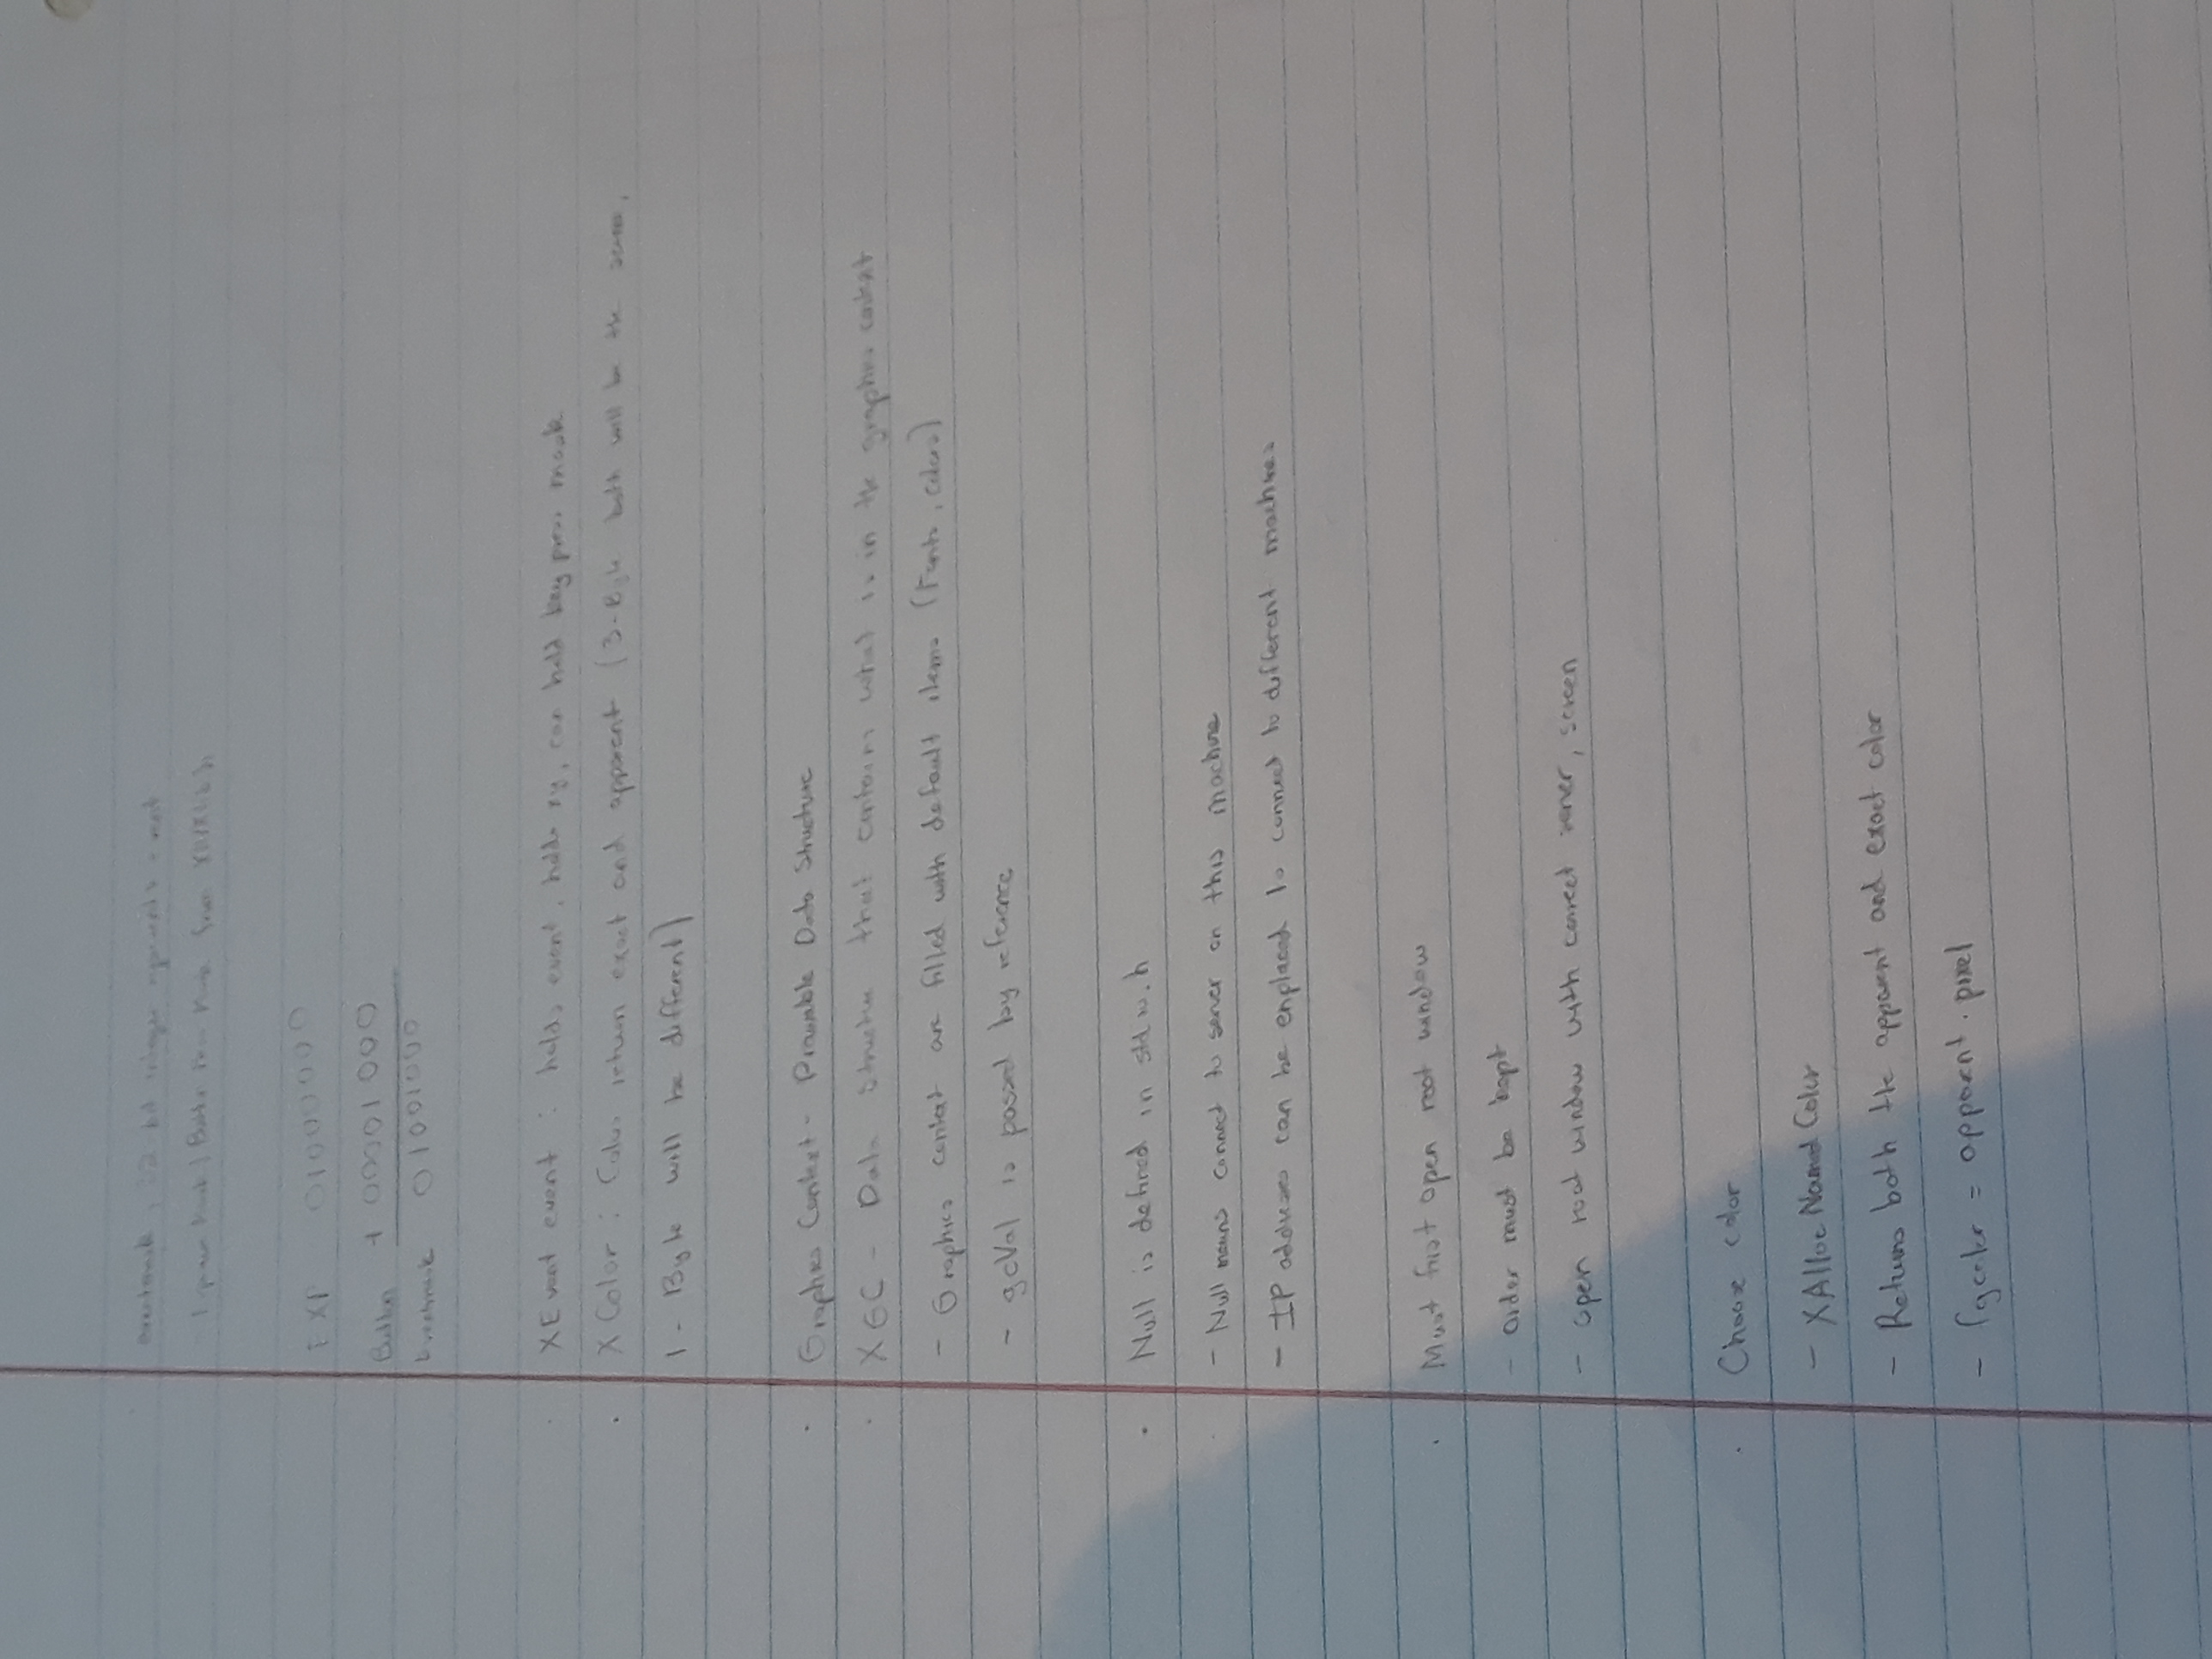 eventmask, 32 bit integer represents event
Mask | Button Mask from X11/Xlib.h
EXP 01000000
Button + 00001000
Eventmask 01001000
· XEvent event : holds event, holds xy, can hold key press mask
· XColor : Color return exact and apparent (3-Byte both will be the same,
1 - Byte will be different)
· Graphics Context - Drawable Data Structure
· XGC - Data Structure that contains what is in the graphics context
- Graphics context are filled with default items (Fonts, colors)
- gcVal is passed by reference
· Null is defined in .h
- Null means connect to server on this machine
- IP addresses can be enplaced to connect to different machines
· Must first open root window
- order must be kept
- open root window with correct server, screen
· Choose color
- XAllocNamedColor
- Returns both the apparent and exact color
- fgcolor = apparent.pixel